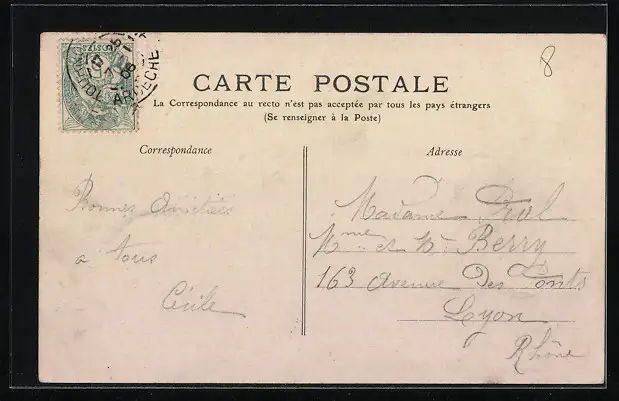 8
CARTE POSTALE
La Correspondance au recto n'est pas acceptée par tous les pays étrangers
(Se renseigner à la Poste)
Correspondance
Adresse
Bonnes Amitiés
a tous
Cécile
Madame
Mme et M. Berry
163 avenue Des Ponts
Lyon
Rhône
ARDECHE